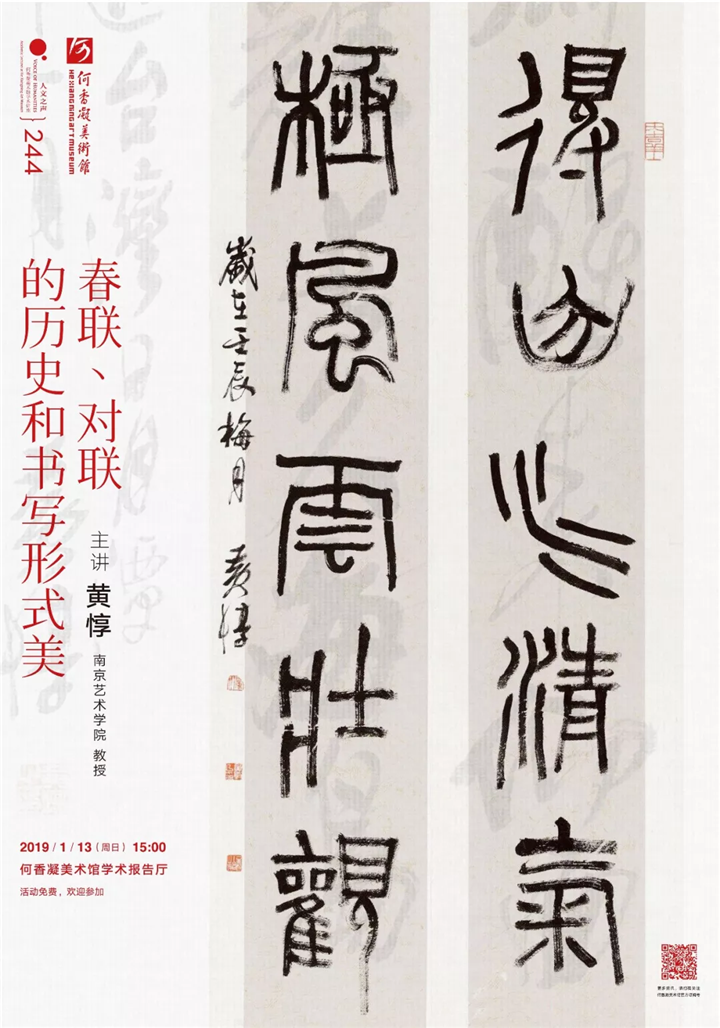 得山水清氣
極風雲壯觀
歲在壬辰梅月 黃惇
何香凝美術館
HE XIANGNING ART MUSEUM
人文之声
VOICE OF HUMANITIES
244
春联、对联
的历史和书写形式美
主讲 黄惇 南京艺术学院 教授
2019 / 1 / 13（周日） 15:00
何香凝美术馆学术报告厅
活动免费，欢迎参加